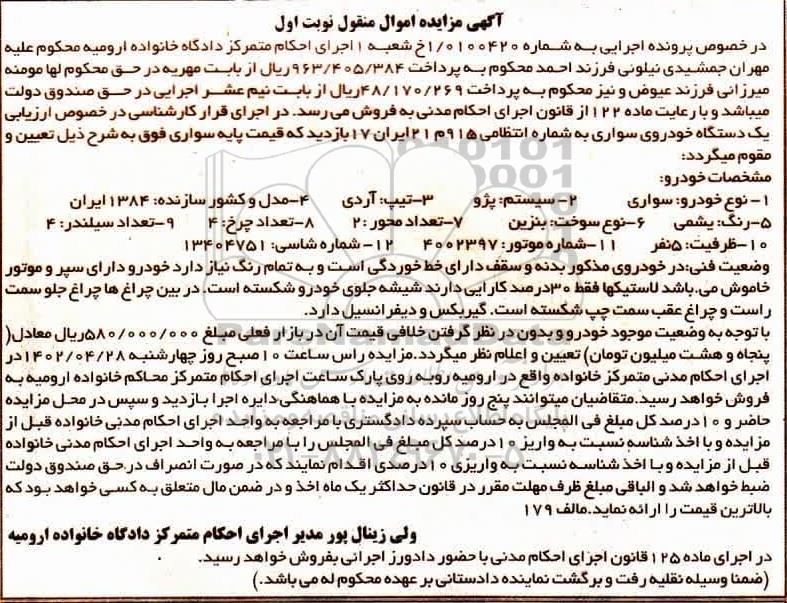 آگهی مزایده اموال منقول نوبت اول
در خصوص پرونده اجرایی به شماره ۱/۰۱۰۰۴۲۰خ شعبه ۱ اجرای احکام متمرکز دادگاه خانواده ارومیه محکوم علیه
مهران جمشیدی نیلونی فرزند احمد محکوم به پرداخت ۹۶۳/۴۰۵/۳۸۴ریال از بابت مهریه در حق محکوم لها مومنه
میرزانی فرزند عیوض و نیز محکوم به پرداخت ۴۸/۱۷۰/۲۶۹ریال از بابت نیم عشر اجرایی در حق صندوق دولت
میباشد و با رعایت ماده ۱۲۲از قانون اجرای احکام مدنی به فروش می رسد. در اجرای قرار کارشناسی در خصوص ارزیابی
یک دستگاه خودروی سواری به شماره انتظامی ۹۱۵م ۲۱ایران ۱۷بازدید که قیمت پایه سواری فوق به شرح ذیل تعیین و
مقوم میگردد:
مشخصات خودرو:
۱- نوع خودرو: سواری ۲- سیستم: پژو ۳-تیپ: آردی ۴-مدل و کشور سازنده: ۱۳۸۴ایران
۵-رنگ: یشمی ۶-نوع سوخت: بنزین ۷-تعداد محور :۲ ۸-تعداد چرخ: ۴ ۹-تعداد سیلندر: ۴
۱۰-ظرفیت: ۵نفر ۱۱-شماره موتور: ۴۰۰۲۳۹۷ ۱۲-شماره شاسی: ۱۳۴۰۴۷۵۱
وضعیت فنی:در خودروی مذکور بدنه و سقف دارای خط خوردگی است و به تمام رنگ نیاز دارد خودرو دارای سپر و موتور
خاموش می.باشد لاستیکها فقط ۳۰درصد کارایی دارند شیشه جلوی خودرو شکسته است. در بین چراغ ها چراغ جلو سمت
راست و چراغ عقب سمت چپ شکسته است. گیربکس و دیفرانسیل دارد.
با توجه به وضعیت موجود خودرو و بدون در نظر گرفتن خلافی قیمت آن در بازار فعلی مبلغ ۵۸۰/۰۰۰/۰۰۰ریال معادل(
پنجاه و هشت میلیون تومان) تعیین و اعلام نظر میگردد.مزایده راس ساعت ۱۰صبح روز چهارشنبه ۱۴۰۲/۰۴/۲۸در
اجرای احکام مدنی متمرکز خانواده واقع در ارومیه روبه روی پارک ساعت اجرای احکام متمرکز محاکم خانواده ارومیه به
فروش خواهد رسید.متقاضیان میتوانند پنج روز مانده به مزایده با هماهنگی دایره اجرا بازدید و سپس در محل مزایده
حاضر و ۱۰درصد کل مبلغ فی المجلس به حساب سپرده دادگستری با مراجعه به واحد اجرای احکام مدنی خانواده قبل از
مزایده و با اخذ شناسه نسبت به واریز ۱۰درصد کل مبلغ فی المجلس را با مراجعه به واحد اجرای احکام مدنی خانواده
قبل از مزایده و با اخذ شناسه نسبت به واریزی ۱۰درصدی اقدام نمایند که در صورت انصراف در حق صندوق دولت
ضبط خواهد شد و الباقی مبلغ ظرف مهلت مقرر در قانون حداکثر یک ماه اخذ و در ضمن مال متعلق به کسی خواهد بود که
بالاترین قیمت را ارائه نماید.مالف ۱۷۹
ولی زینال پور مدیر اجرای احکام متمرکز دادگاه خانواده ارومیه
در اجرای ماده ۱۲۵قانون اجرای احکام مدنی با حضور دادورز اجرائی بفروش خواهد رسید.
(ضمنا وسیله نقلیه رفت و برگشت نماینده دادستانی بر عهده محکوم له می باشد.)
ParsNamadData
پایگاه اطلاع رسانی مناقصه و مزایده
۰۲۱-۸۸۳۴۹۶۷۰-۵